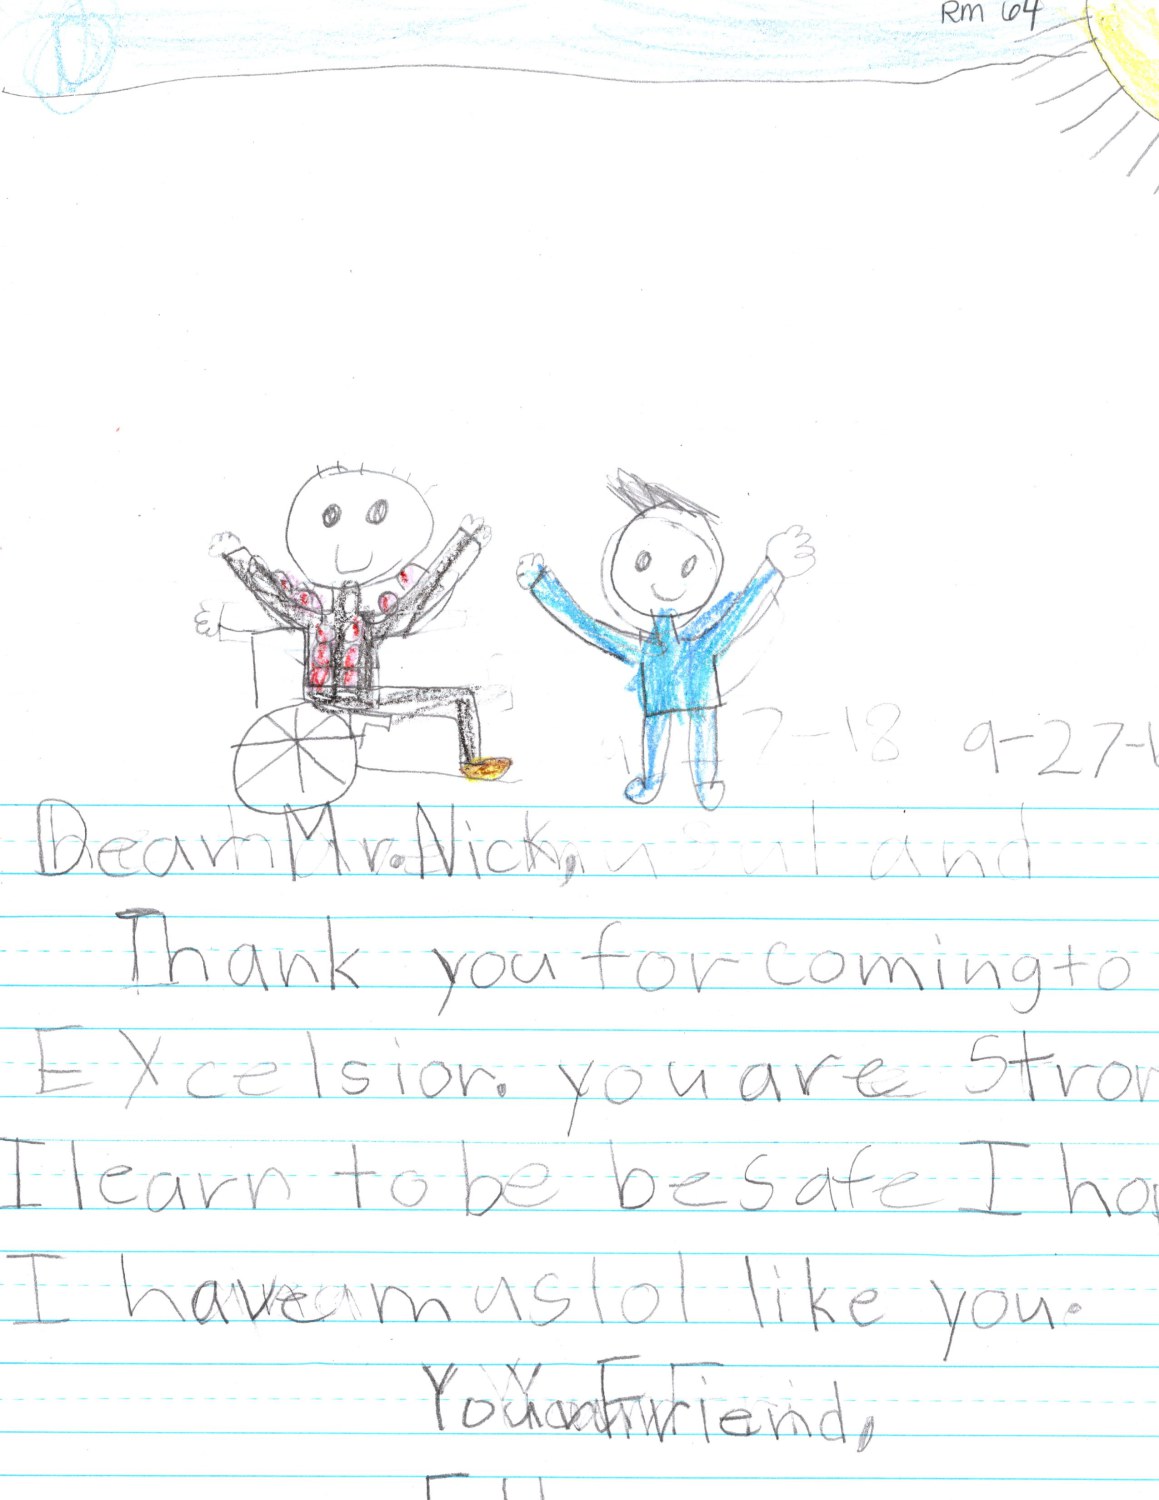 Rm 64
7-18 9-27-1
Dear Mr. Nick,
Thank you for coming to
Excelsior. you are Stron
I learn to be be safe I hop
I have a muslol like you.
Your Friend,